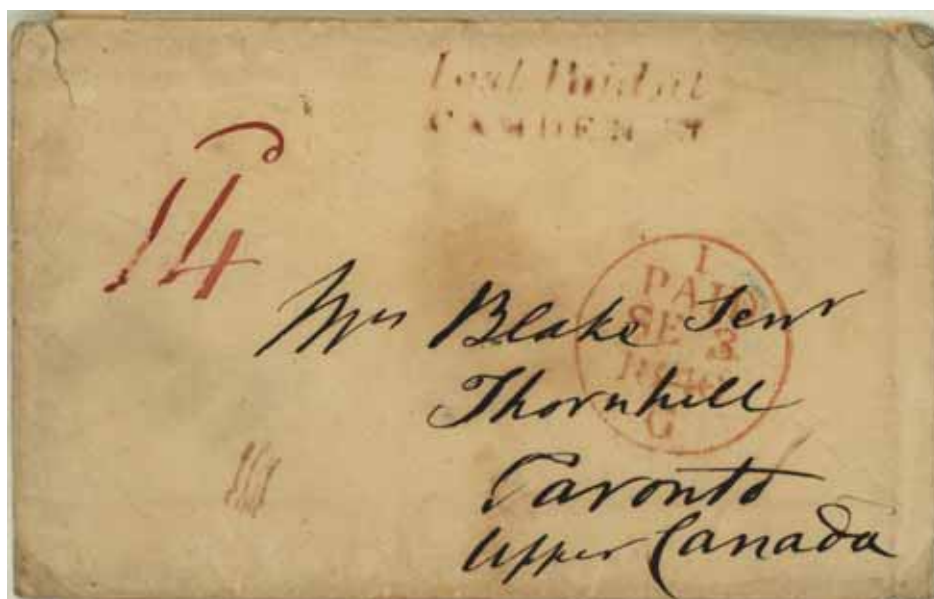 Paid at
CAMDEN
14
I
PAID
SE 3
184
C
Mrs Blake Senr
Thornhill
Toronto
Upper Canada